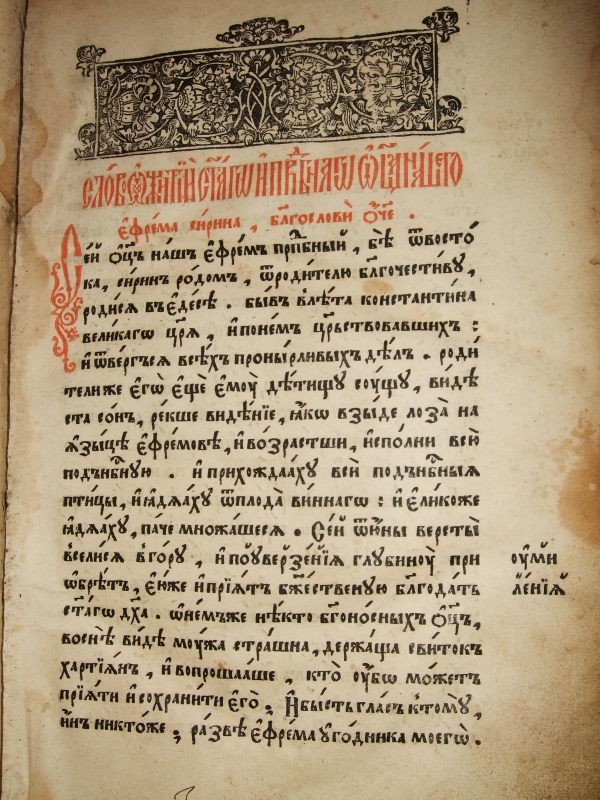 сло́во ѡ҆житїи ст҃а́гѡ и҆прпⷣбнагѡ ѻ҆ц҃а на́шегѡ
є҆фре́ма си́рина, бл҃гослови̑ ѻ҆́ч҃е.
Се́й ѻ҆ц҃ъ на́шъ є҆фре́мъ прпⷣбный, бѣ̀ ѿвосто́
ка, си́ринъ ро́домъ, ѿроди́телю бл҃гочести́вꙋ,
роди́сѧ въє҆де́сѣ. бы́въ влѣ́та константи́на
вели́кагѡ цр҃ѧ̀, и҆поне́мъ цр҃ьствовавшихъ:
и҆ѿве́ргъсѧ всѣ́хъ пронырливыхъ дѣ́лъ. роди́
телиже є҆гѡ̀ є҆щѐ є҆моу̀ дѣ́тищꙋ соу́щꙋ, ви́дѣ
ста со́нъ, ре́кше видѣ́нїе, ꙗ҆́кѡ взы́де лоза̀ на
ѧ҆зы́цѣ є҆фре́мовѣ, и҆во́зрастши, и҆спо́лни всю̀
подънб҃ную. и҆прихожда́ахꙋ всѝ подънб҃ныѧ
пти́цы, и҆ꙗ҆дѧ́хꙋ ѿплода̀ ви́ннагѡ: и҆є҆ли́коже
ꙗ҆дѧ́ахꙋ, па́че множа́шесѧ. Се́й ѿю҆́ны версты̀
всели́сѧ вго́рꙋ, и҆поу҆верзе́нїѧ глꙋбиноу̀ при
ѡ҆брѣ́тъ, є҆ю́же и҆прїѧ́тъ бж҃е́ственую бл҃года́ть
ст҃а́гѡ дх҃а. ѡ҆не́мъже нѣ́кто бг҃оно́сныхъ ѻ҆ц҃ъ,
воснѣ̀ ви́дѣ моу́жа стра́шна, держа́ща сви́токъ
харті́ѧнъ, и҆вопроша́аше, кто̀ оу҆́бѡ мо́жетъ
прїѧ́ти и҆сохрани́ти є҆го̀; И҆бы́сть гла́съ ктомꙋ̀,
и҆́нъ никто́же; ра́звѣ є҆фре́ма оу҆го́дника моегѡ̀.
оу҆ми
ле́нїѧ